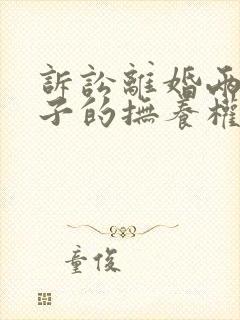 訴訟離婚兩
子的撫養權
童俊